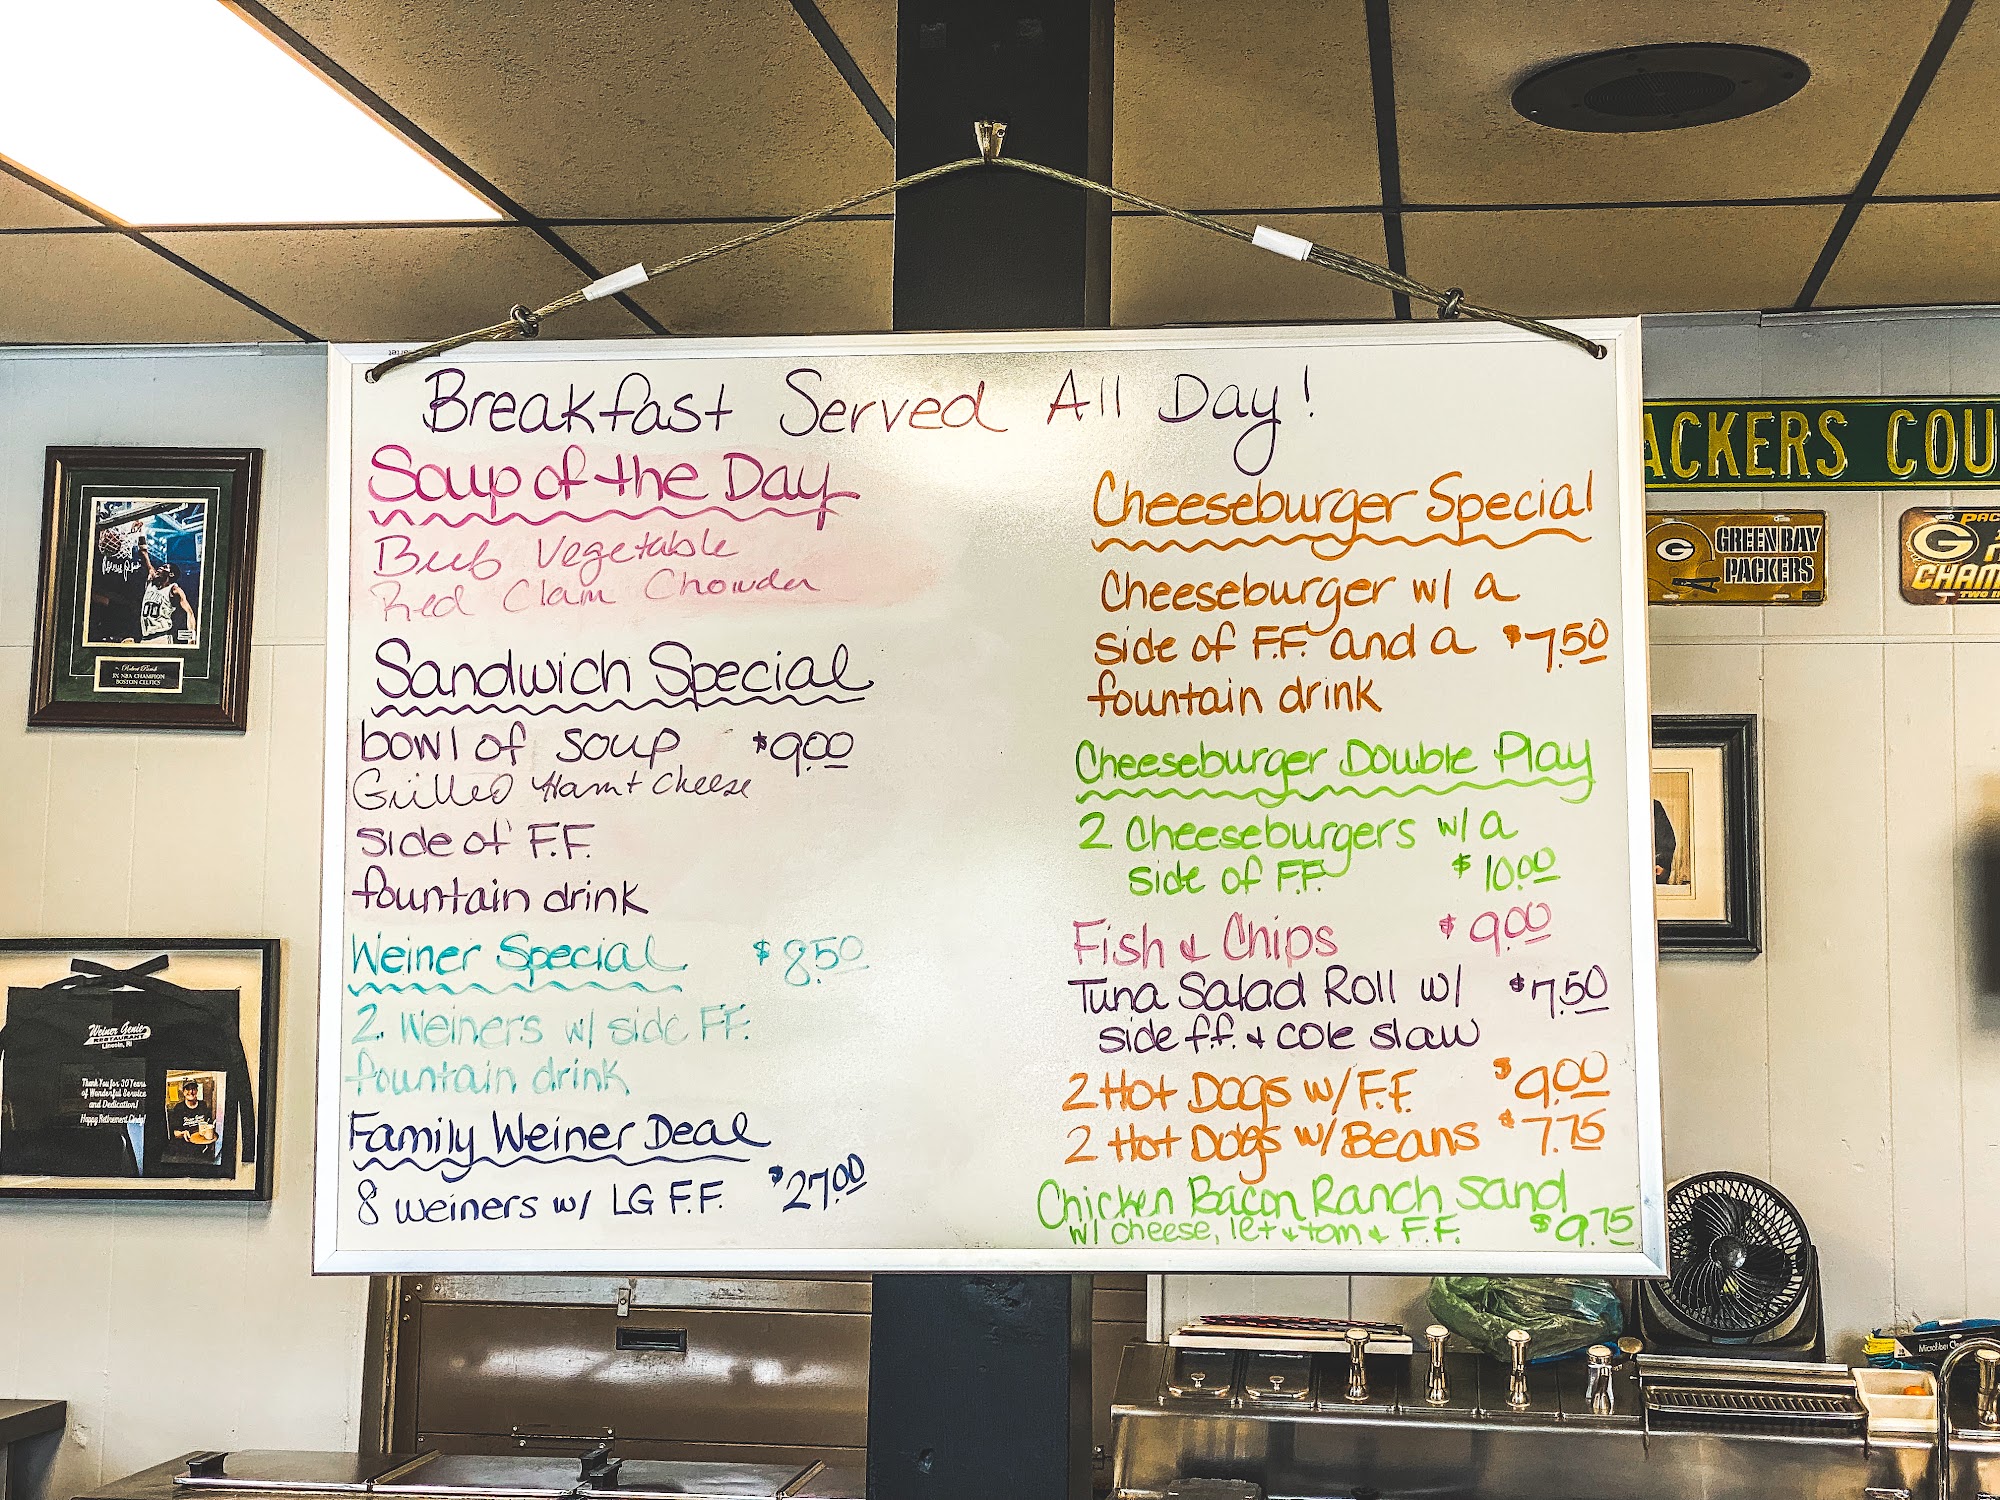 Breakfast Served All Day!
Soup of the Day
Beef Vegetable
Red Clam Chowder
Sandwich Special
bowl of soup $9.00
Grilled Ham + Cheese
side of F.F.
fountain drink
Weiner Special $8.50
2 Weiners w/ side FF.
fountain drink
Family Weiner Deal
8 weiners w/ LG F.F. $27.00
Cheeseburger Special
Cheeseburger w/ a
side of F.F. and a $7.50
fountain drink
Cheeseburger Double Play
2 Cheeseburgers w/ a
side of F.F. $10.00
Fish & Chips $9.00
Tuna Salad Roll w/ $7.50
side f.f. & cole slaw
2 Hot Dogs w/ F.F. $9.00
2 Hot Dogs w/ Beans $7.75
Chicken Bacon Ranch Sand
w/ cheese, let & tom & F.F. $9.75
ACKERS COU
GREEN BAY
PACKERS
G
PAC
G
CHAM
TWO
Robert Parish
3X NBA CHAMPION
BOSTON CELTICS
00
Weiner Genie
RESTAURANT
Lincoln, RI
Thank You for 30 Years
of Wonderful Service
and Dedication!
Happy Retirement Cindy!